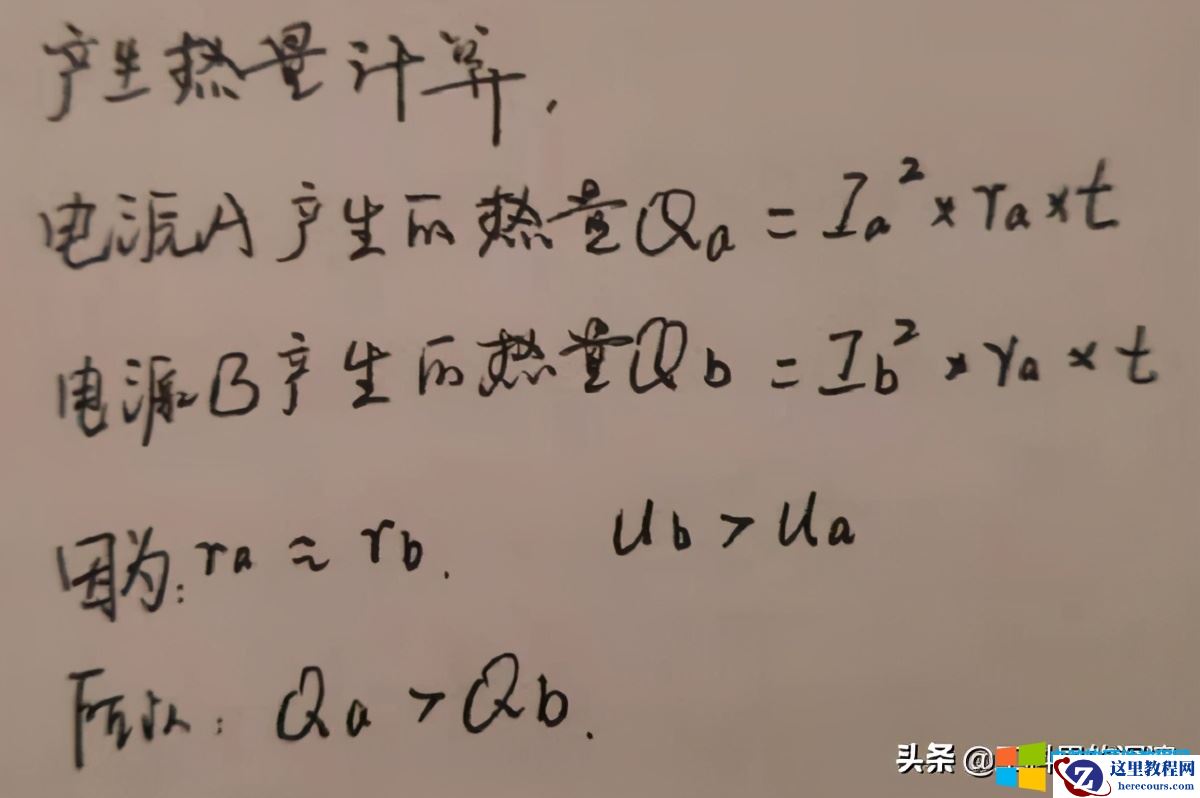 产生热量计算.
电源A产生的热量Qa = Ia² × ra × t
电源B产生的热量Qb = Ib² × ra × t
因为: ra ≈ rb. Ub > Ua
所以: Qa > Qb.
头条 @
这里教程网
herecours.com